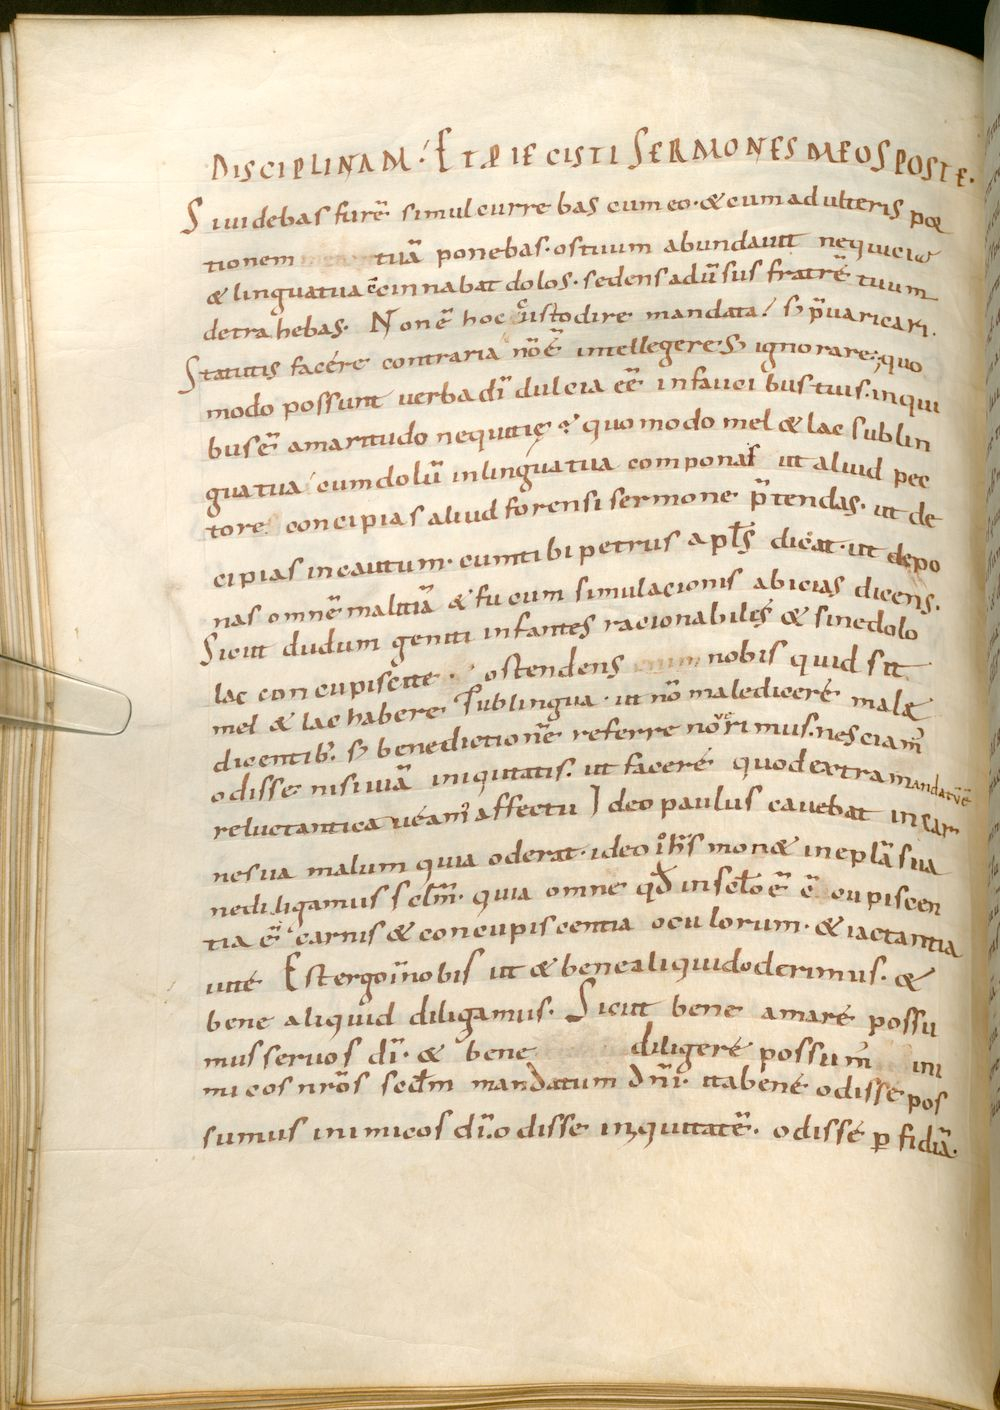 DISCIPLINAM. ET P̄IECISTI SERMONES MEOS POST E.
Si uidebas furē simul currebas cum eo. & cum adulteris por
tionem tuā ponebas. os tuum abundauit nequicia
& lingua tua ccinnabat dolos. sedens aduͥsus fratrē tuum
detrahebas. Non ē hoc custodire mandata! s; p̄uaricari.
Statutis facére contraria nō ē intellegere s; ignorare; quo
modo possunt uerba dī dulcia ēē in faucibus tuis. in qui
bus ē amaritudo nequitię? quomodo mel & lac sub lin
gua tua cum dolū in lingua tua componas ut aliud pec
tore concipias aliud forensi sermone p̄tendas. ut de
cipias incautum. cum tibi petrus apls̄ dicat. ut depo
nas omnē malitiā & fucum simulacionis abicias dicens.
Sicut dudum geniti infantes racionabiles & sine dolo
lac concupiscite. ostendens nobis quid sit
mel & lac habere sub lingua. ut nō maledicere male
dicentib; s; benedictionē referre nouerimus. nesciam
odisse nisi uiā iniquitatis. ut facere quod extra mandatū ē
reluctantica ueam affectu Ideo paulus cauebat in car
ne sua malum quia oderat. ideo ihs̄ mon& in eplā sua
ne diligamus sclm̄. quia omne qd̄ in sclo ē cupiscen
tia ē carnis & concupiscentia oculorum. & iactantia
uite Est ergo in nobis ut & bene aliquid oderimus. &
bene aliquid diligamus. Sicut bene amare possu
mus seruos dī. & bene diligere possum ini
micos nrōs scdm̄ mandatum dn̄i. ita bene odisse pos
sumus inimicos dī. odisse iniquitatē. odisse ꝑfidiā.